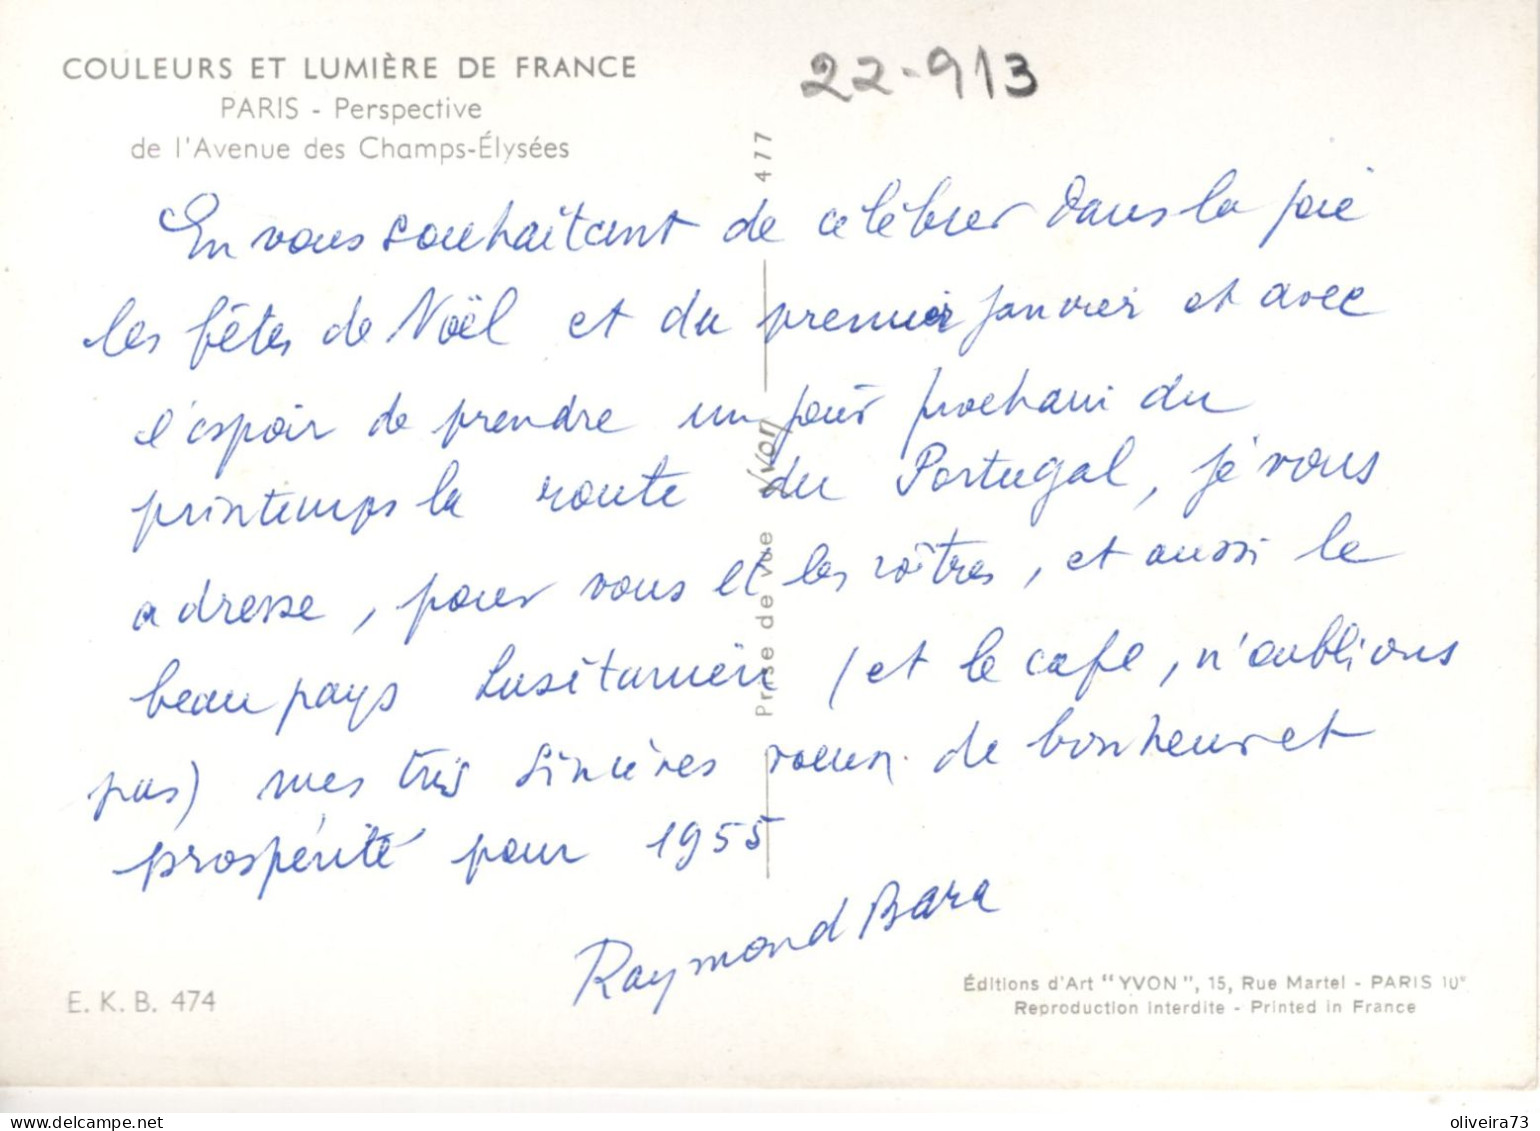 COULEURS ET LUMIÈRE DE FRANCE
PARIS - Perspective
de l'Avenue des Champs-Élysées
22-913
En vous souhaitant de célébrer dans la joie
les fêtes de Noël et du premier janvier et avec
l'espoir de prendre un jour prochain du
printemps la route du Portugal, je vous
adresse, pour vous et les vôtres, et aussi le
beau pays Lusitanien (et le café, n'oublions
pas) mes très sincères voeux de bonheur et
prospérité pour 1955
Raymond Bara
Prise de vue Yvon 477
E. K. B. 474
Éditions d'Art "YVON", 15, Rue Martel - PARIS 10e
Reproduction interdite - Printed in France
delcampe.net
oliveira73